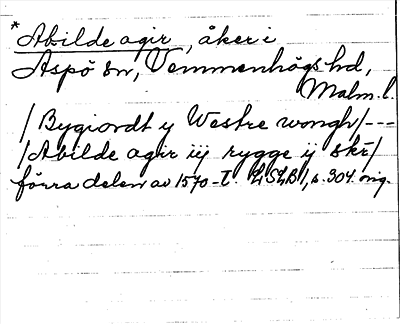 *Abilde agir, åker i
Aspö sn, Vemmenhögs hd,
Malm. l.
/Bygiordt y Westre wongh/---
/Abilde agir iij rygge ij skr/
förra delen av 1570-t. LSLB 1, s. 304. orig.